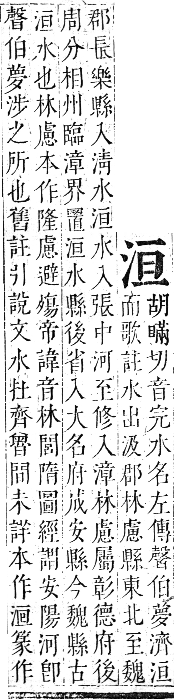 洹
胡瞞切音完水名左傳聲伯夢濟洹
而歌註水出汲郡林慮縣東北至魏
郡長樂縣入清水洹水入張中河至修入漳林慮屬彰德府後
周分相州臨漳界置洹水縣後省入大名府成安縣今魏縣古
洹水也林慮本作隆慮避殤帝諱音林閭隋圖經謂安陽河卽
聲伯夢涉之所也舊註引說文水在齊魯閒未詳本作𣹬篆作